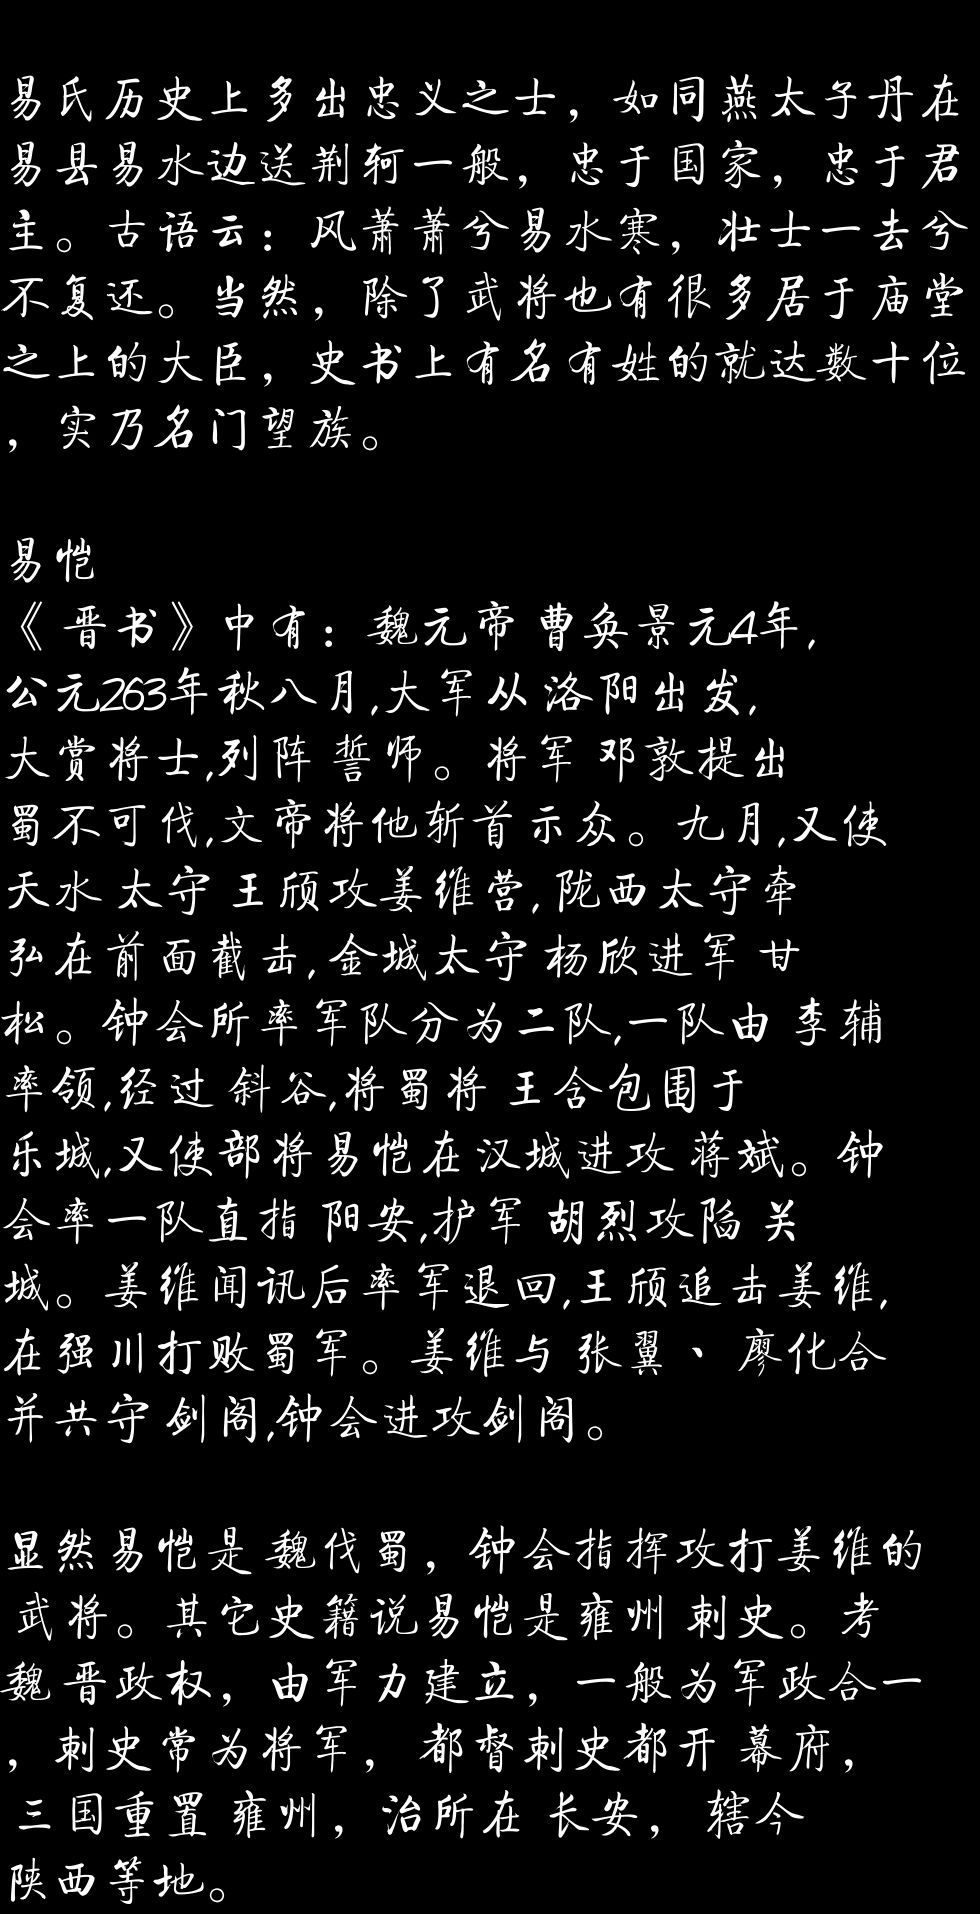 易氏历史上多出忠义之士，如同燕太子丹在
易县易水边送荆轲一般，忠于国家，忠于君
主。古语云：风萧萧兮易水寒，壮士一去兮
不复还。当然，除了武将也有很多居于庙堂
之上的大臣，史书上有名有姓的就达数十位
，实乃名门望族。
易恺
《晋书》中有：魏元帝 曹奂景元4年,
公元263年秋八月,大军从 洛阳出发,
大赏将士,列阵 誓师。将军 邓敦提出
蜀不可伐,文帝将他斩首示众。九月,又使
天水 太守 王颀攻姜维营, 陇西太守牵
弘在前面截击, 金城太守 杨欣进军 甘
松。钟会所率军队分为二队,一队由 李辅
率领,经过 斜谷,将蜀将 王含包围于
乐城,又使部将易恺在 汉城进攻 蒋斌。钟
会率一队直指 阳安,护军 胡烈攻陷 关
城。姜维闻讯后率军退回,王颀追击姜维,
在强川打败蜀军。姜维与 张翼、 廖化合
并共守 剑阁,钟会进攻剑阁。
显然易恺是 魏伐蜀，钟会指挥攻打姜维的
武将。其它史籍说易恺是雍州 刺史。考
魏 晋政权，由军力建立，一般为军政合一
，刺史常为将军， 都督刺史都开 幕府，
三国重置 雍州，治所在 长安， 辖今
陕西等地。